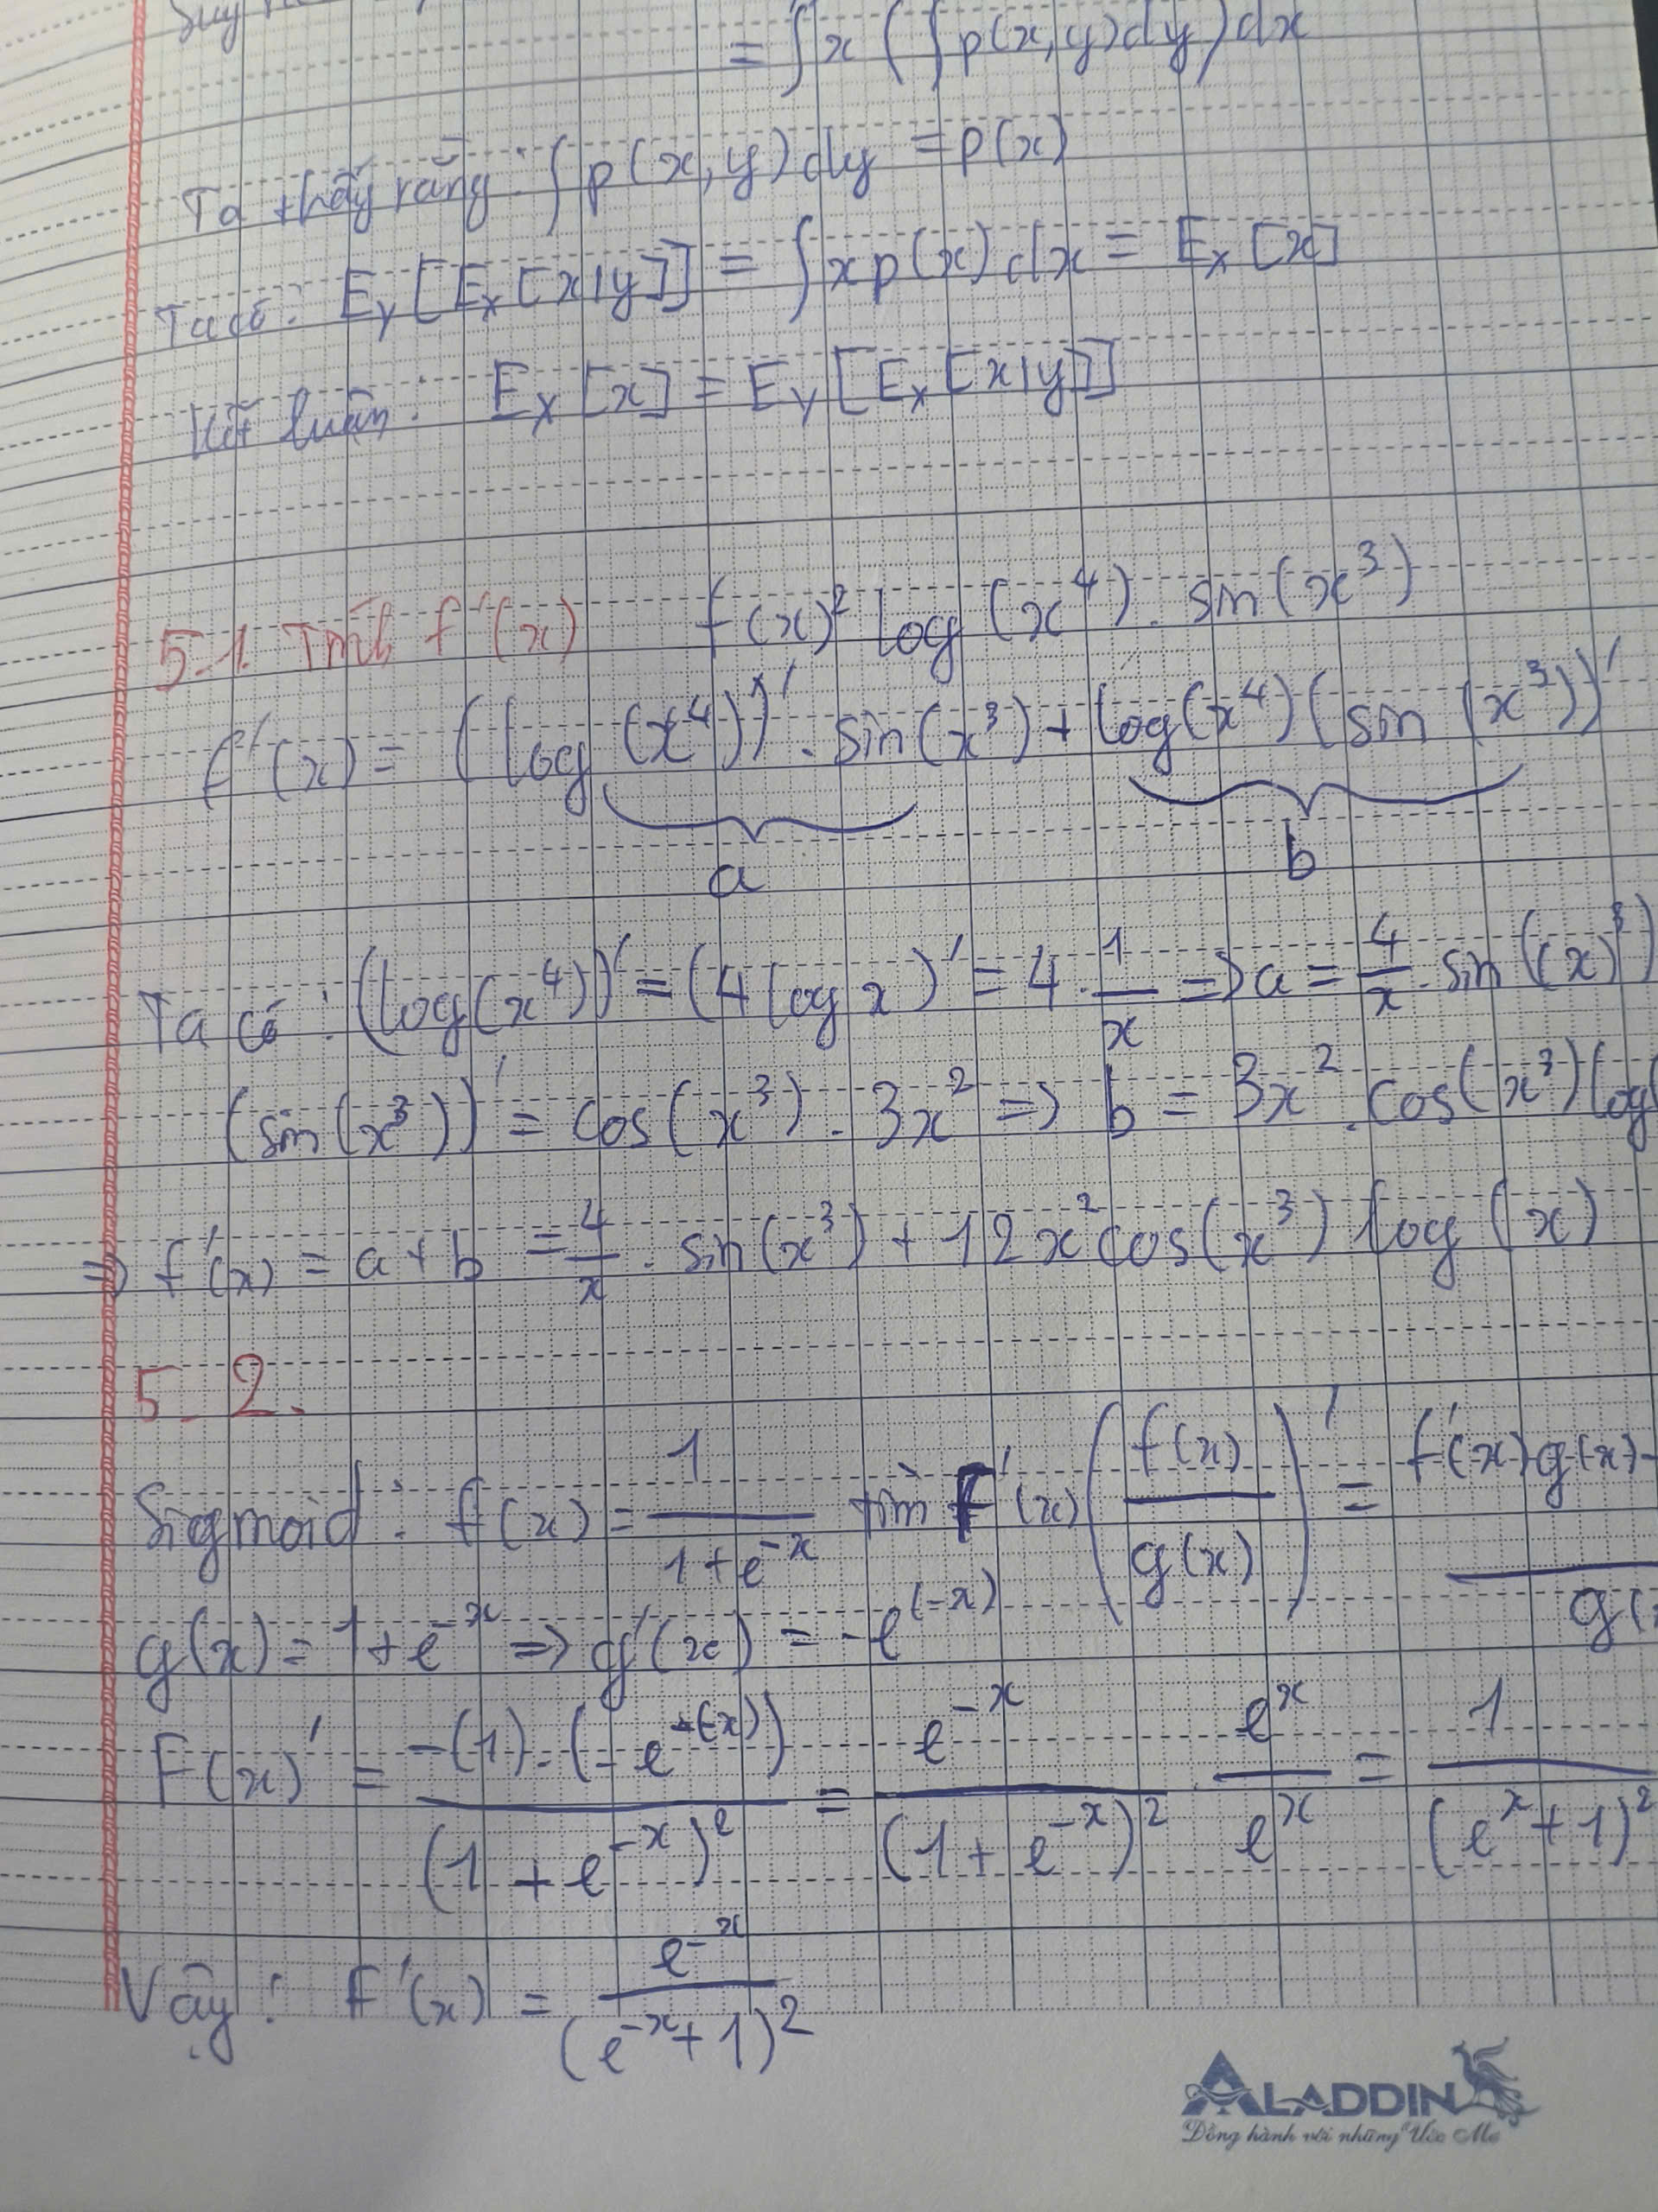 Suy
= ∫ x ( ∫ p(x,y) dy ) dx
Ta thấy rằng : ∫ p(x,y) dy = p(x)
Ta có : E_Y [E_X [x|y]] = ∫ x p(x) dx = E_X [x]
Kết luận : E_X [x] = E_Y [E_X [x|y]]
5.1. Tính f'(x) f(x) = log(x⁴) . sin(x³)
f'(x) = (log(x⁴))' . sin(x³) + log(x⁴)(sin(x³))'
a b
Ta có : (log(x⁴))' = (4 log x)' = 4 . 1/x => a = 4/x . sin((x)³)
(sin(x³))' = cos(x³) . 3x² => b = 3x² . cos(x³) log(
=> f'(x) = a + b = 4/x . sin(x³) + 12x² cos(x³) log(x)
5.2.
Sigmoid : f(x) = 1/(1 + e^-x) tìm F'(x) (f(x)/g(x))' = f'(x) g(x) - / g(x
g(x) = 1 + e^-x => g'(x) = -e^(-x)
F(x)' = -(1) . (-e^(-x)) / (1 + e^-x)² = e^-x / (1 + e^-x)² . e^x / e^x = 1 / (e^x + 1)²
Vậy : F'(x) = e^-x / (e^-x + 1)²
ALADDIN
Đồng hành với những Ước Mơ